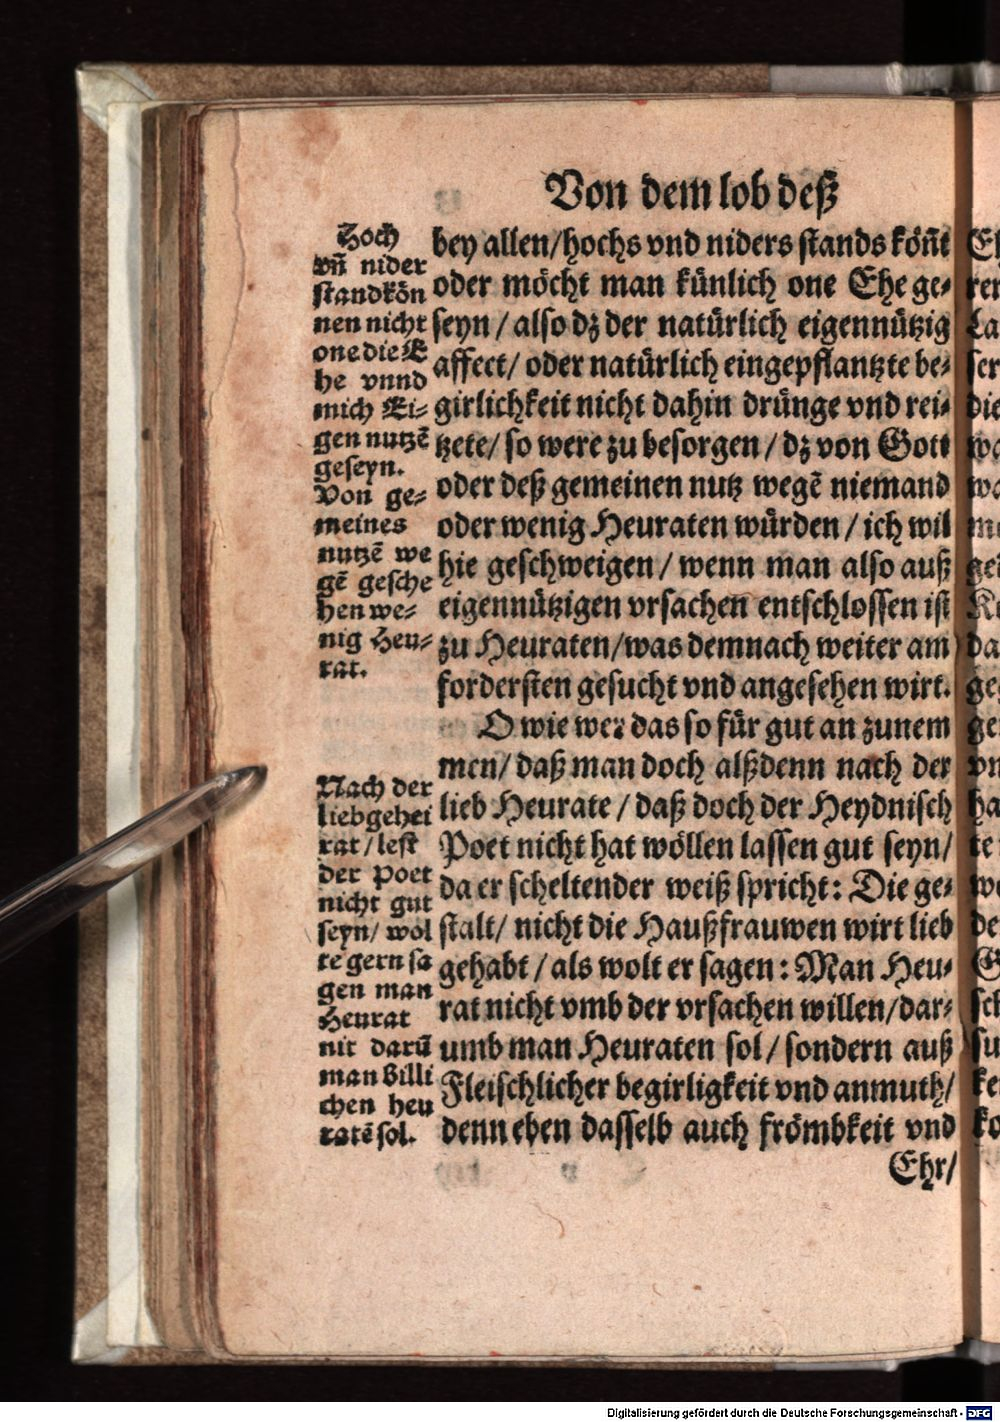 Von dem lob deß
Hoch
vñ nider
stand kön
nen nicht
one die E
he vnnd
mich Ei-
gen nutzẽ
geseyn.
Von ge-
meines
nutzẽ we
gẽ gesche
hen we-
nig Heu-
rat.
Nach der
lieb gehei
rat / lest
der Poet
nicht gut
seyn / wol
te gern sa
gen man
Heurat
nit darũ
man billi
chen heu
ratẽ sol.
bey allen / hochs vnd niders stands köñt
oder möcht man künlich one Ehe ge-
seyn / also dz der natürlich eigennützig
affect / oder natürlich eingepflantzte be-
girlichkeit nicht dahin drünge vnd rei-
tzete / so were zu besorgen / dz von Gott
oder deß gemeinen nutz wegẽ niemand
oder wenig Heuraten würden / ich wil
hie geschweigen / wenn man also auß
eigennützigen vrsachen entschlossen ist
zu Heuraten / was demnach weiter am
fordersten gesucht vnd angesehen wirt.
O wie wer das so für gut an zunem
men / daß man doch alßdenn nach der
lieb Heurate / daß doch der Heydnisch
Poet nicht hat wöllen lassen gut seyn /
da er scheltender weiß spricht : Die ge-
stalt / nicht die Haußfrauwen wirt lieb
gehabt / als wolt er sagen : Man Heu-
rat nicht vmb der vrsachen willen / dar-
umb man Heuraten sol / sondern auß
Fleischlicher begirligkeit vnd anmuth /
denn eben dasselb auch frömbkeit vnd
Ehr /
Digitalisierung gefördert durch die Deutsche Forschungsgemeinschaft - DFG